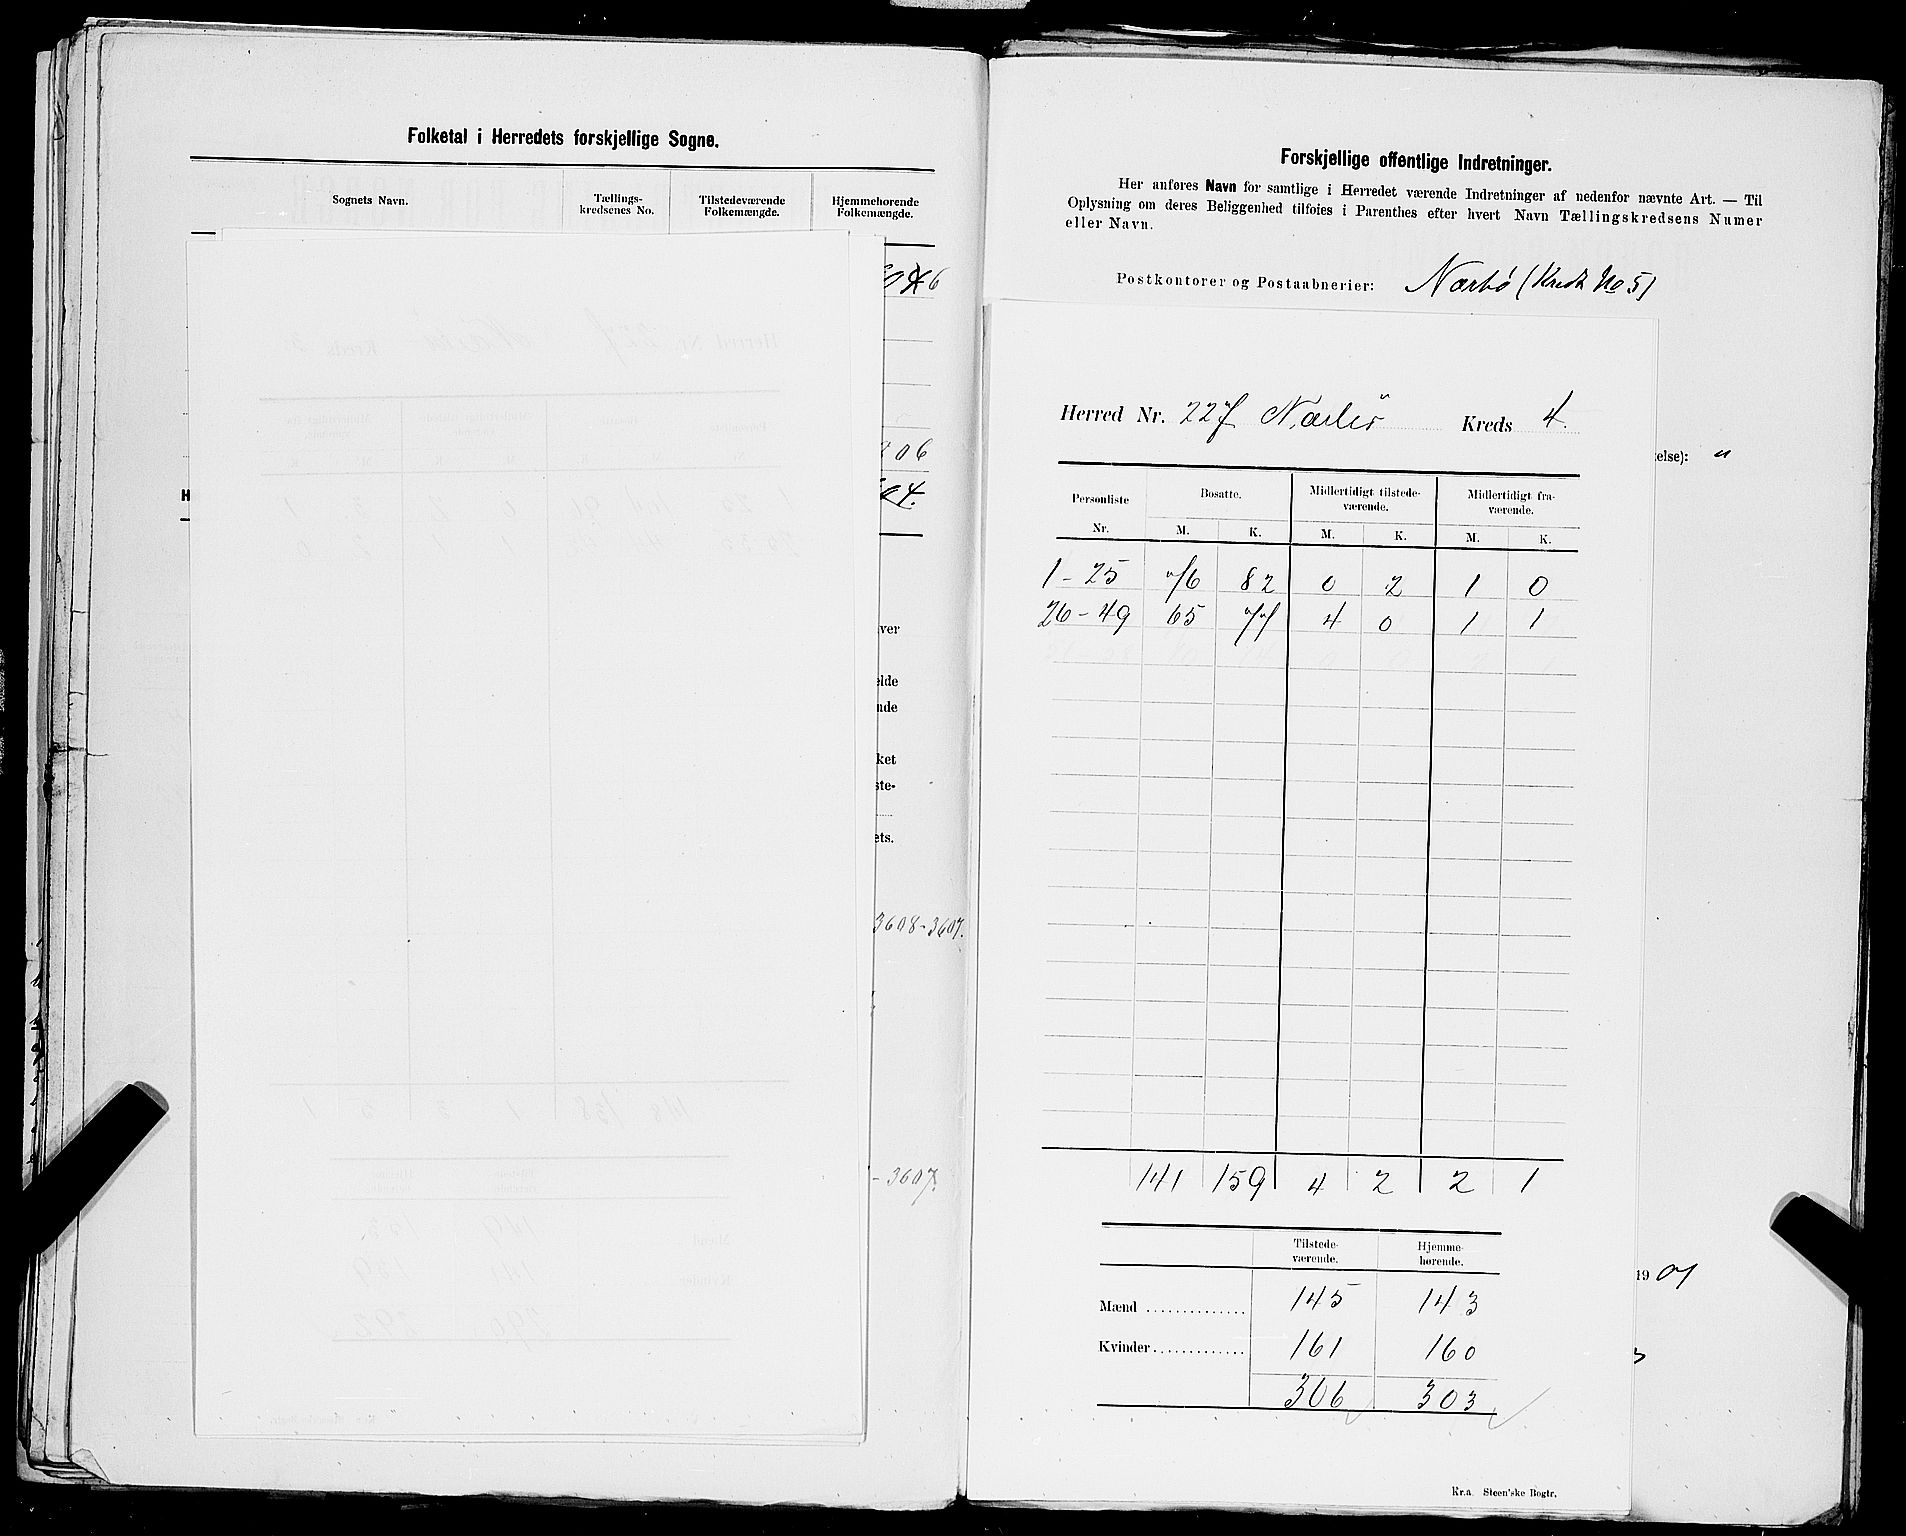 Folketal i Herredets forskjellige Sogne.
Sognets Navn. Tællings-kredsenes No. Tilstedeværende Folkemængde. Hjemmehørende Folkemængde.
06
04.
ver
elde
nde
ket
ste-
ets.
3608-3607.
- 3607.
Forskjellige offentlige Indretninger.
Her anføres Navn for samtlige i Herredet værende Indretninger af nedenfor nævnte Art. — Til
Oplysning om deres Beliggenhed tilføies i Parenthes efter hvert Navn Tællingskredsens Numer
eller Navn.
Postkontorer og Postaabnerier: Nærbø (Kreds No 5)
kelse): "
Herred Nr. 227 Nærbø Kreds 4.
Personliste Nr. Bosatte. Midlertidigt tilstede-værende. Midlertidigt fra-værende.
M. K. M. K. M. K.
1-25 76 82 0 2 1 0
26-49 65 77 4 0 1 1
141 159 4 2 2 1
Tilstede-værende. Hjemme-hørende.
Mænd 145 143
Kvinder 161 160
306 303
1901
Kr.a. Steen'ske Bogtr.